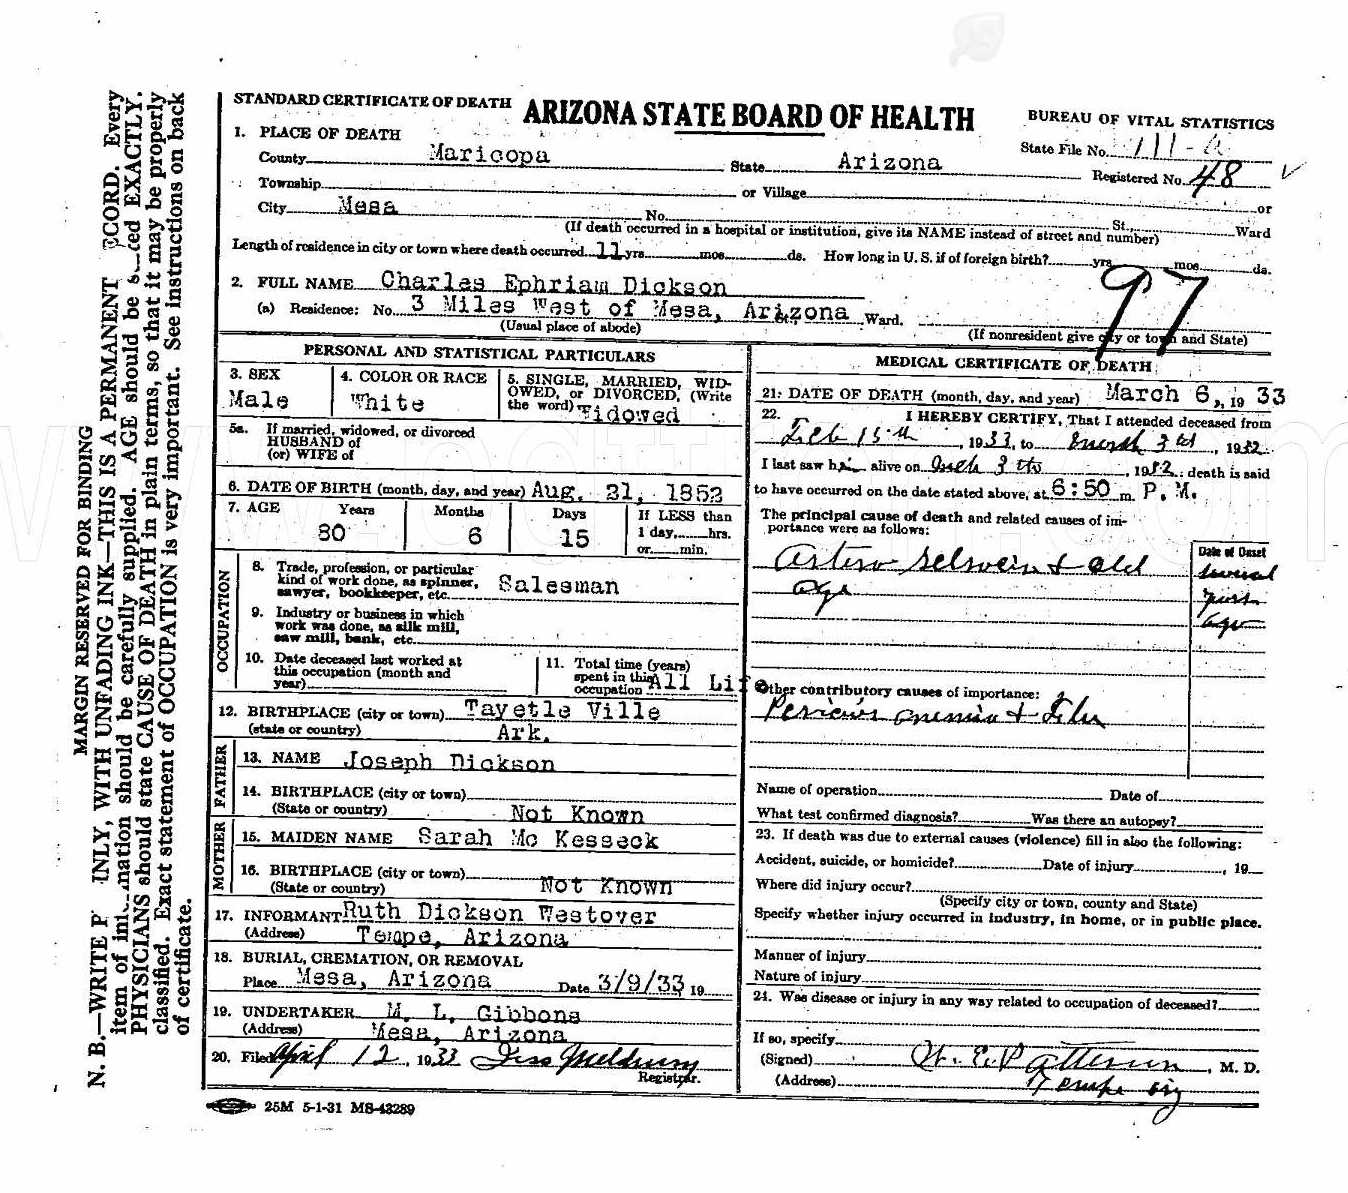 STANDARD CERTIFICATE OF DEATH ARIZONA STATE BOARD OF HEALTH
BUREAU OF VITAL STATISTICS
1. PLACE OF DEATH
State File No. 111-a
County Maricopa State Arizona
Registered No. 48
Township or Village
or
City Mesa No. St., Ward
(If death occurred in a hospital or institution, give its NAME instead of street and number)
Length of residence in city or town where death occurred 11 yrs. mos. ds. How long in U. S. if of foreign birth? yrs. mos. ds.
97
2. FULL NAME Charles Ephriam Dickson
(a) Residence: No. 3 Miles West of Mesa, Arizona St., Ward.
(Usual place of abode) (If nonresident give city or town and State)
PERSONAL AND STATISTICAL PARTICULARS
3. SEX
Male
4. COLOR OR RACE
White
5. SINGLE, MARRIED, WID-
OWED, or DIVORCED, (Write
the word) Widowed
5a. If married, widowed, or divorced
HUSBAND of
(or) WIFE of
6. DATE OF BIRTH (month, day, and year) Aug. 21, 1852
7. AGE Years Months Days If LESS than
1 day, hrs.
or min.
80 6 15
OCCUPATION
8. Trade, profession, or particular
kind of work done, as spinner,
sawyer, bookkeeper, etc. Salesman
9. Industry or business in which
work was done, as silk mill,
saw mill, bank, etc.
10. Date deceased last worked at
this occupation (month and
year)
11. Total time (years)
spent in this
occupation All Life
12. BIRTHPLACE (city or town) Tayetle Ville
(state or country) Ark.
FATHER
13. NAME Joseph Dickson
14. BIRTHPLACE (city or town)
(State or country) Not Known
MOTHER
15. MAIDEN NAME Sarah Mc Kesseck
16. BIRTHPLACE (city or town)
(State or country) Not Known
17. INFORMANT Ruth Dickson Westover
(Address) Tempe, Arizona
18. BURIAL, CREMATION, OR REMOVAL
Place Mesa, Arizona Date 3/9/33, 19
19. UNDERTAKER M. L. Gibbons
(Address) Mesa, Arizona
20. Filed April 12, 1933
Registrar.
25M 5-1-31 MS-43289
MEDICAL CERTIFICATE OF DEATH
21. DATE OF DEATH (month, day, and year) March 6,, 19 33
22. I HEREBY CERTIFY, That I attended deceased from
Feb 15th, 1933, to 3rd, 1932.
I last saw him alive on 3th, 1932; death is said
to have occurred on the date stated above, at 6:50 m. P. M.
The principal cause of death and related causes of im-
portance were as follows:
Date of Onset
+ old
age
several
years
ago
Other contributory causes of importance:
anemia +
Name of operation Date of
What test confirmed diagnosis? Was there an autopsy?
23. If death was due to external causes (violence) fill in also the following:
Accident, suicide, or homicide? Date of injury, 19
Where did injury occur?
(Specify city or town, county and State)
Specify whether injury occurred in industry, in home, or in public place.
Manner of injury
Nature of injury
24. Was disease or injury in any way related to occupation of deceased?
If so, specify
(Signed) W. E. Patterson, M. D.
(Address) Tempe
MARGIN RESERVED FOR BINDING
N. B.—WRITE INLY, WITH UNFADING INK—THIS IS A PERMANENT CORD. Every
item of information should be carefully supplied. AGE should be stated EXACTLY.
PHYSICIANS should state CAUSE OF DEATH in plain terms, so that it may be properly
classified. Exact statement of OCCUPATION is very important. See instructions on back
of certificate.